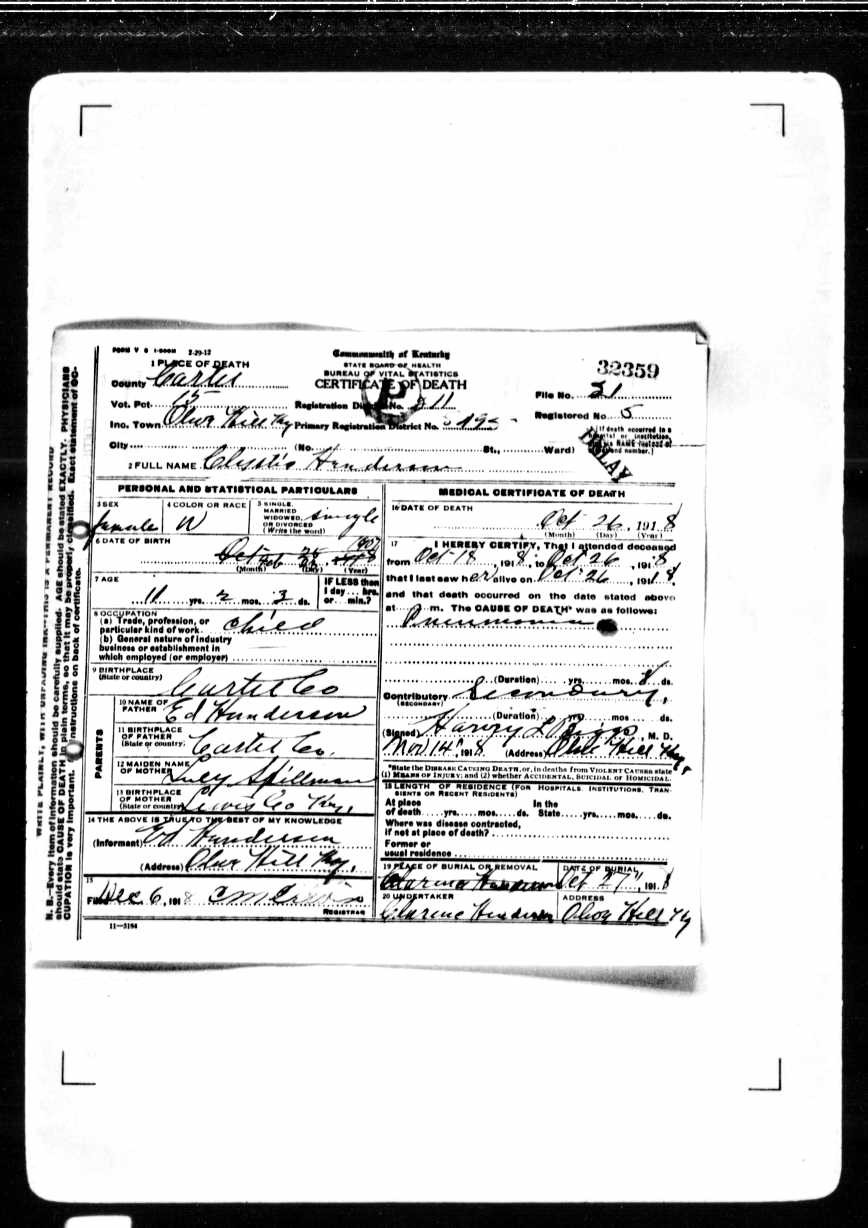 FORM V S 1-500M 2-29-12
Commonwealth of Kentucky
STATE BOARD OF HEALTH
BUREAU OF VITAL STATISTICS
CERTIFICATE OF DEATH
32359
1 PLACE OF DEATH
County Carter
Vot. Pct. 15
Registration District No. 211
File No. 21
Inc. Town Olive Hill Ky
Primary Registration District No.
Registered No. 5
City (No. St., Ward)
(If death occurred in a hospital or institution, give its NAME instead of street and number.)
P
DELAY
2 FULL NAME Henderson
PERSONAL AND STATISTICAL PARTICULARS
3 SEX female
4 COLOR OR RACE W
5 SINGLE, MARRIED WIDOWED, OR DIVORCED (Write the word) Single
6 DATE OF BIRTH
(Month) (Day) (Year)
7 AGE 11 yrs. 2 mos. 3 ds.
IF LESS than 1 day... hrs. or... min.?
8 OCCUPATION
(a) Trade, profession, or particular kind of work child
(b) General nature of industry business or establishment in which employed (or employer)
9 BIRTHPLACE (State or country) Carter Co
PARENTS
10 NAME OF FATHER Ed Henderson
11 BIRTHPLACE OF FATHER (State or country) Carter Co.
12 MAIDEN NAME OF MOTHER Lucy Spillman
13 BIRTHPLACE OF MOTHER (State or country) Lewis Co Ky.
14 THE ABOVE IS TRUE TO THE BEST OF MY KNOWLEDGE
(Informant) Ed Henderson
(Address) Olive Hill Ky.
15
Filed Dec. 6, 1918
REGISTRAR
11-3184
MEDICAL CERTIFICATE OF DEATH
16 DATE OF DEATH
Oct 26, 1918
(Month) (Day) (Year)
17 I HEREBY CERTIFY, That I attended deceased
from Oct 18, 1918, to Oct 26, 1918
that I last saw her alive on Oct 26, 1918,
and that death occurred on the date stated above
at m. The CAUSE OF DEATH* was as follows:
Pneumonia
(Duration) yrs. mos. 8 ds.
Contributory Secondary,
(SECONDARY)
(Duration) yrs mos ds.
(Signed) Harvey L , M. D.
Nov 14, 1918 (Address) Olive Hill Ky,
*State the DISEASE CAUSING DEATH, or, in deaths from VIOLENT CAUSES state (1) MEANS OF INJURY; and (2) whether ACCIDENTAL, SUICIDAL OR HOMICIDAL.
18 LENGTH OF RESIDENCE (FOR HOSPITALS, INSTITUTIONS, TRANSIENTS OR RECENT RESIDENTS)
At place of death yrs. mos. ds. In the State yrs. mos. ds.
Where was disease contracted, if not at place of death?
Former or usual residence
19 PLACE OF BURIAL OR REMOVAL
DATE OF BURIAL
Oct 27, 1918
20 UNDERTAKER
ADDRESS
Clarenc Henderson Olive Hill Ky
WRITE PLAINLY, WITH UNFADING INK—THIS IS A PERMANENT RECORD
N. B.—Every item of information should be carefully supplied. AGE should be stated EXACTLY. PHYSICIANS
should state CAUSE OF DEATH in plain terms, so that it may be properly classified. Exact statement of OC-
CUPATION is very important. instructions on back of certificate.